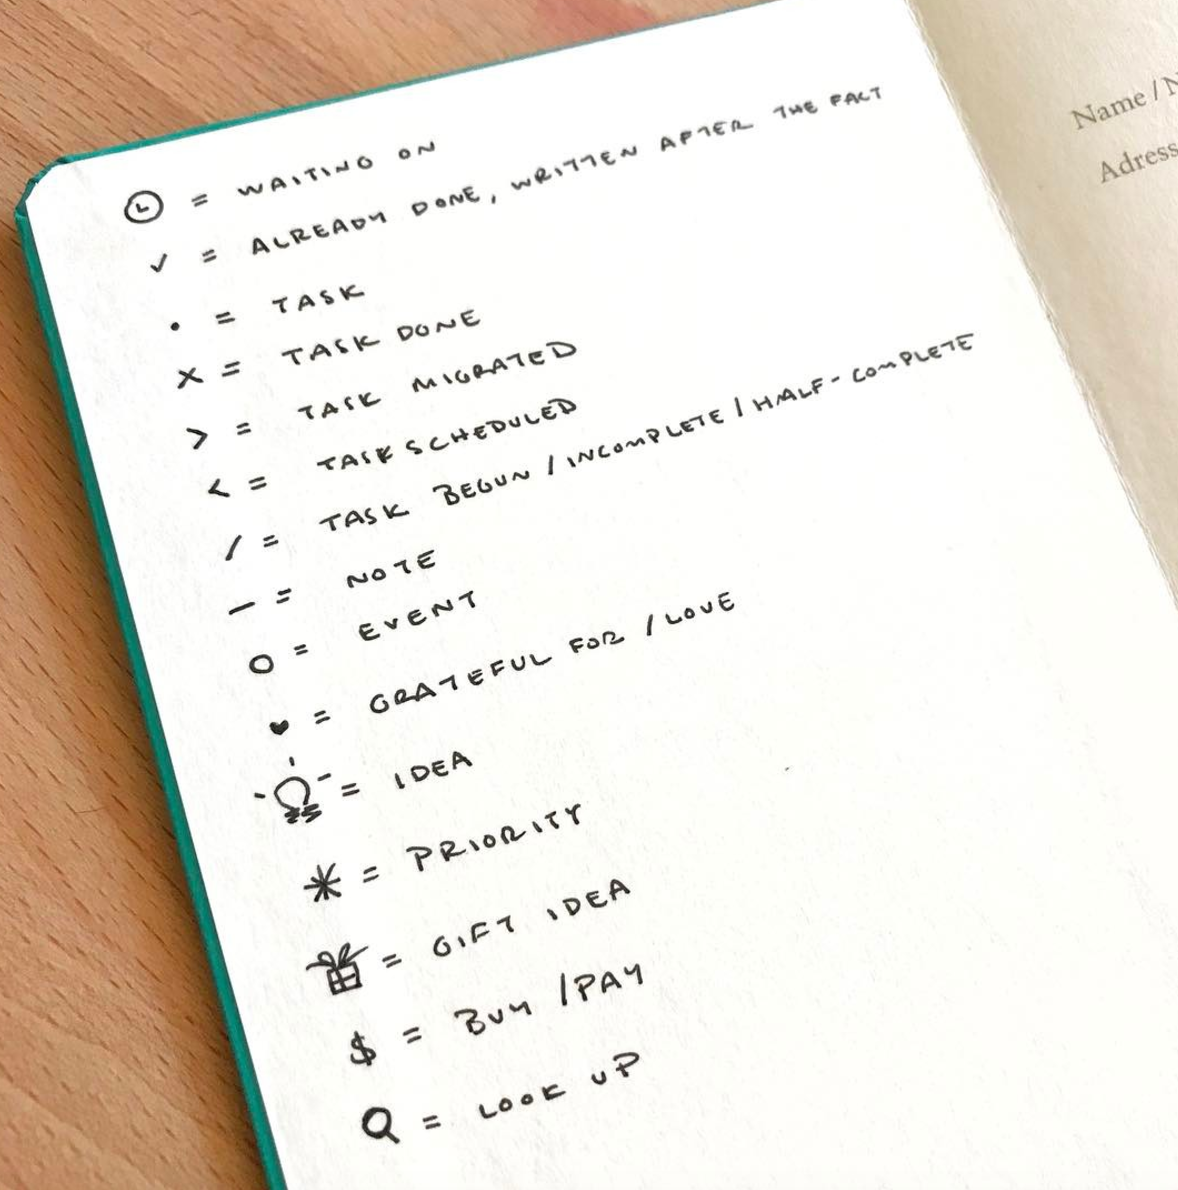 = WAITING ON
✓ = ALREADY DONE, WRITTEN AFTER THE FACT
• = TASK
x = TASK DONE
> = TASK MIGRATED
< = TASK SCHEDULED
/ = TASK BEGUN / INCOMPLETE / HALF-COMPLETE
— = NOTE
o = EVENT
♥ = GRATEFUL FOR / LOVE
= IDEA
* = PRIORITY
= GIFT IDEA
$ = BUY / PAY
= LOOK UP
Name / N
Adress